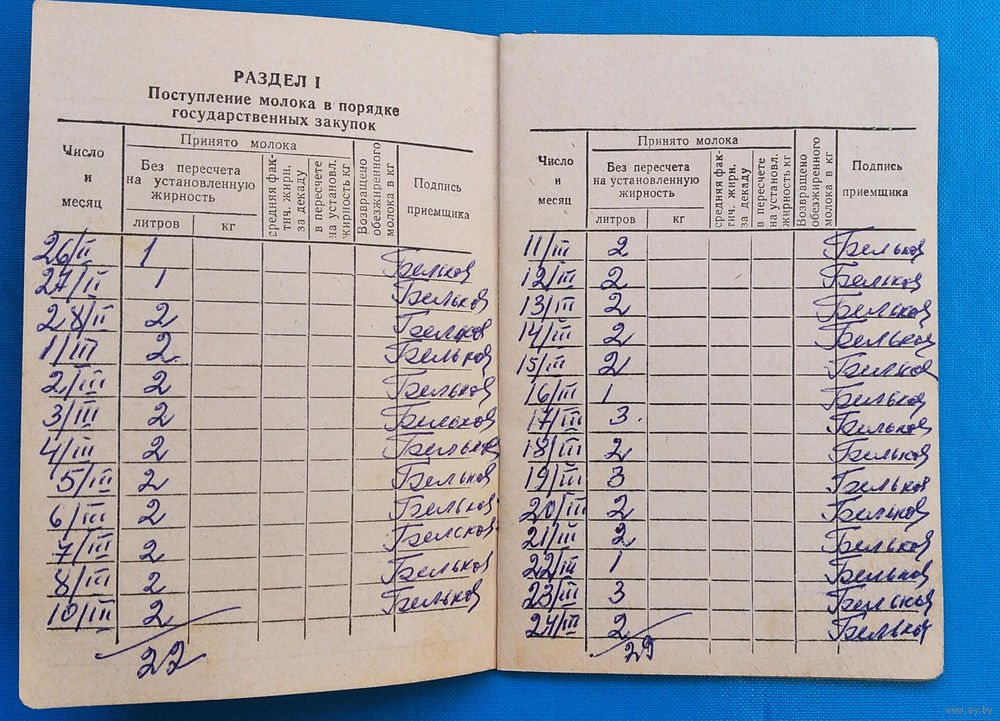 РАЗДЕЛ I
Поступление молока в порядке
государственных закупок
Число
и
месяц
Принято молока
Без пересчета
на установленную
жирность
литров
кг
средняя фак-
тич. жирн.
за декаду
в пересчете
на установл.
жирность кг
Возвращено
обезжиренного
молока в кг
Подпись
приемщика
26/II 1 Бельков
27/II 1 Бельков
28/II 2 Бельков
1/III 2 Бельков
2/III 2 Бельков
3/III 2 Бельков
4/III 2 Бельков
5/III 2 Бельков
6/III 2 Бельков
7/III 2 Бельков
8/III 2 Бельков
10/III 2 Бельков
22
Число
и
месяц
Принято молока
Без пересчета
на установленную
жирность
литров
кг
средняя фак-
тич. жирн.
за декаду
в пересчете
на установл.
жирность кг
Возвращено
обезжиренного
молока в кг
Подпись
приемщика
11/III 2 Бельков
12/III 2 Бельков
13/III 2 Бельков
14/III 2 Бельков
15/III 2 Бельков
16/III 1 Бельков
17/III 3. Бельков
18/III 2 Бельков
19/III 3 Бельков
20/III 2 Бельков
21/III 2 Бельков
22/III 1 Бельков
23/III 3 Бельков
24/III 2 Бельков
29
www.ay.by